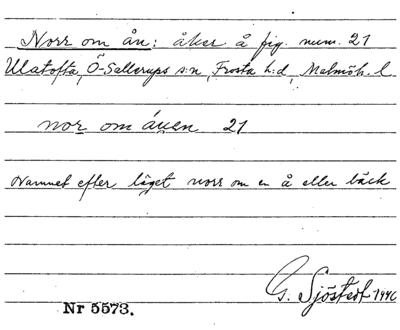 Norr om ån: åker å fig. num. 21
Ulatofta, Ö-Sallerups s:n, Frosta h:d, Malmöh. l
nor om åuen 21
Namnet efter läget norr om en å eller bäck
G. Sjöstedt 1940
Nr 5573.